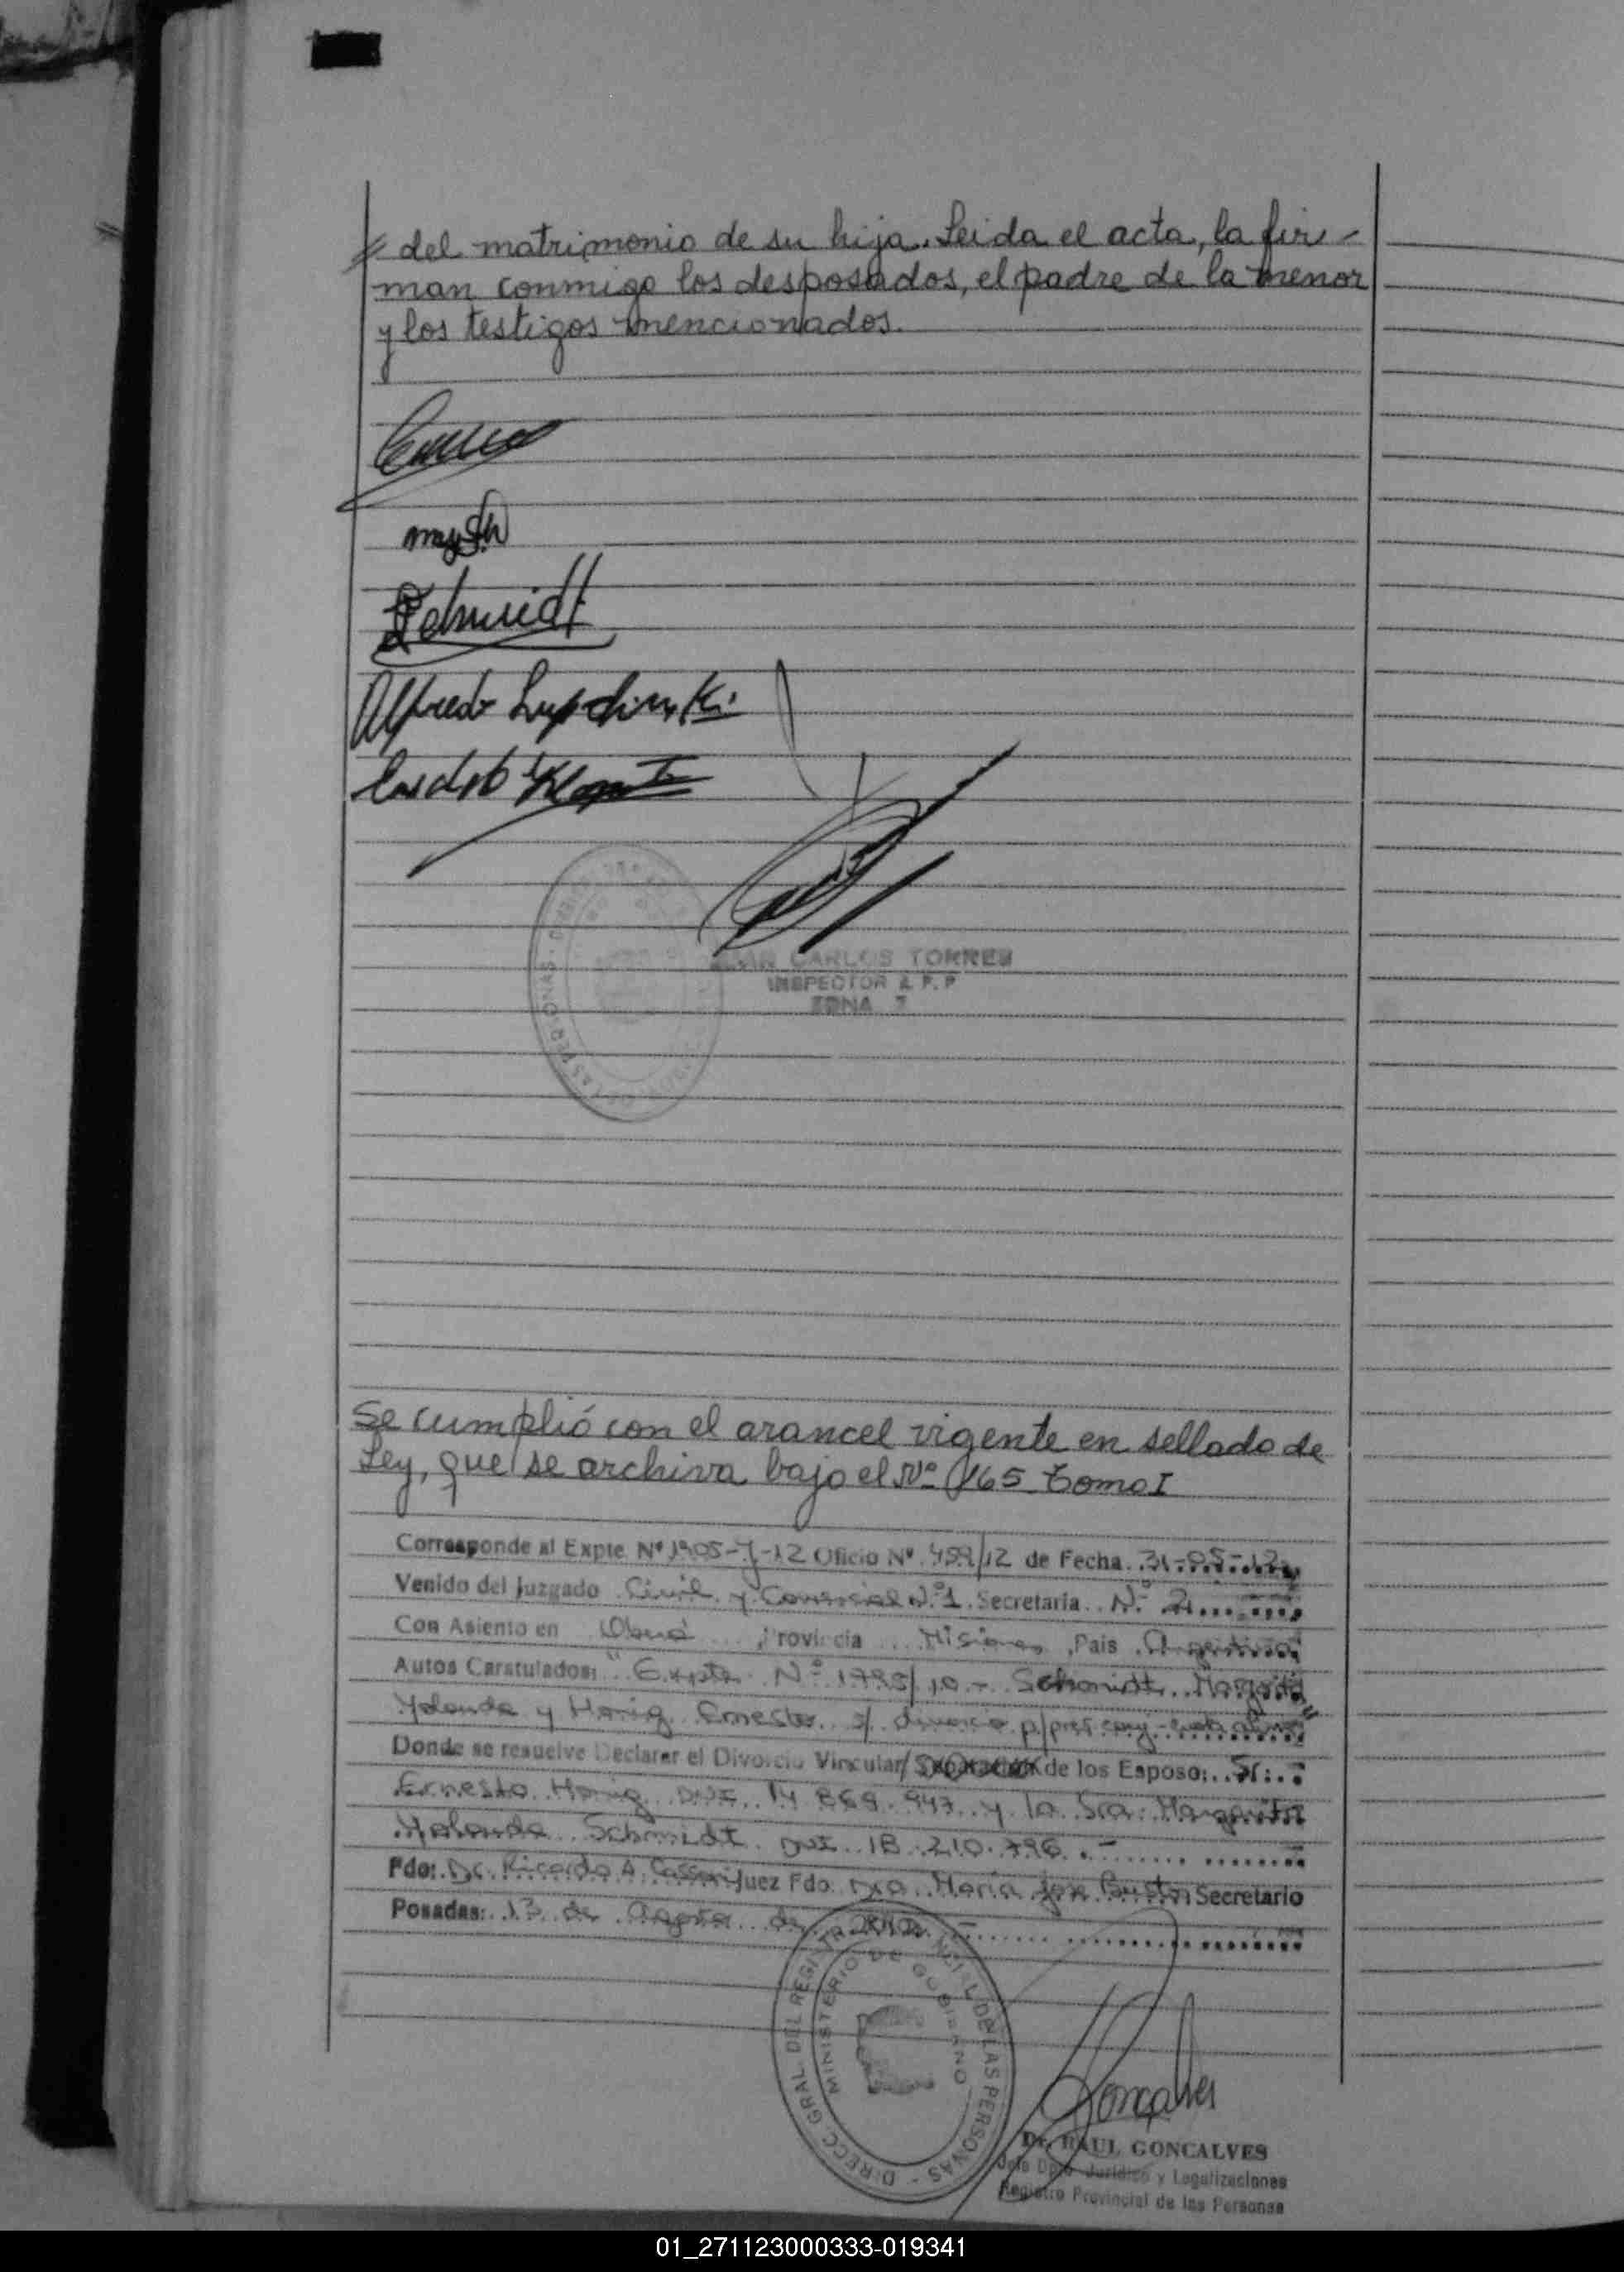 del matrimonio de su hija. Leida el acta, la fir-
man conmigo los desposados, el padre de la menor
y los testigos mencionados.
Schmidt
Alfredo
CARLOS TORRES
INSPECTOR
ZONA
Se cumplió con el arancel vigente en sellado de
Ley, que se archiva bajo el Nº 165 Tomo I
Corresponde al Expte Nº 1905-J-12 Oficio Nº 459/12 de Fecha 31-05-12
Venido del Juzgado Civil y Comercial Nº 1 Secretaria Nº 2
Con Asiento en Oberá Provincia Misiones Pais Argentina
Autos Caratulados: "Expte Nº /10 - Schmidt Margarita
Yolanda y Honig Ernesto s/ divorcio p/pres. conj.
Donde se resuelve Declarar el Divorcio Vincular/ Separación de los Esposo: Sr.
Ernesto Honig DNI 14.869.947 y la Sra. Margarita
Yolanda Schmidt DNI 18.210.796.-
Fdo: Dr. Ricardo A. Juez Fdo Dra. María José Secretario
Posadas: 13 de Agosto de 2012 -
DIRECC. GRAL DEL REGISTRO PROVINCIAL DE LAS PERSONAS -
MINISTERIO DE GOBIERNO
Goncalves
Dr. RAUL GONCALVES
Jefe Dpto. Jurídico y Legalizaciones
Registro Provincial de las Personas
01_271123000333-019341